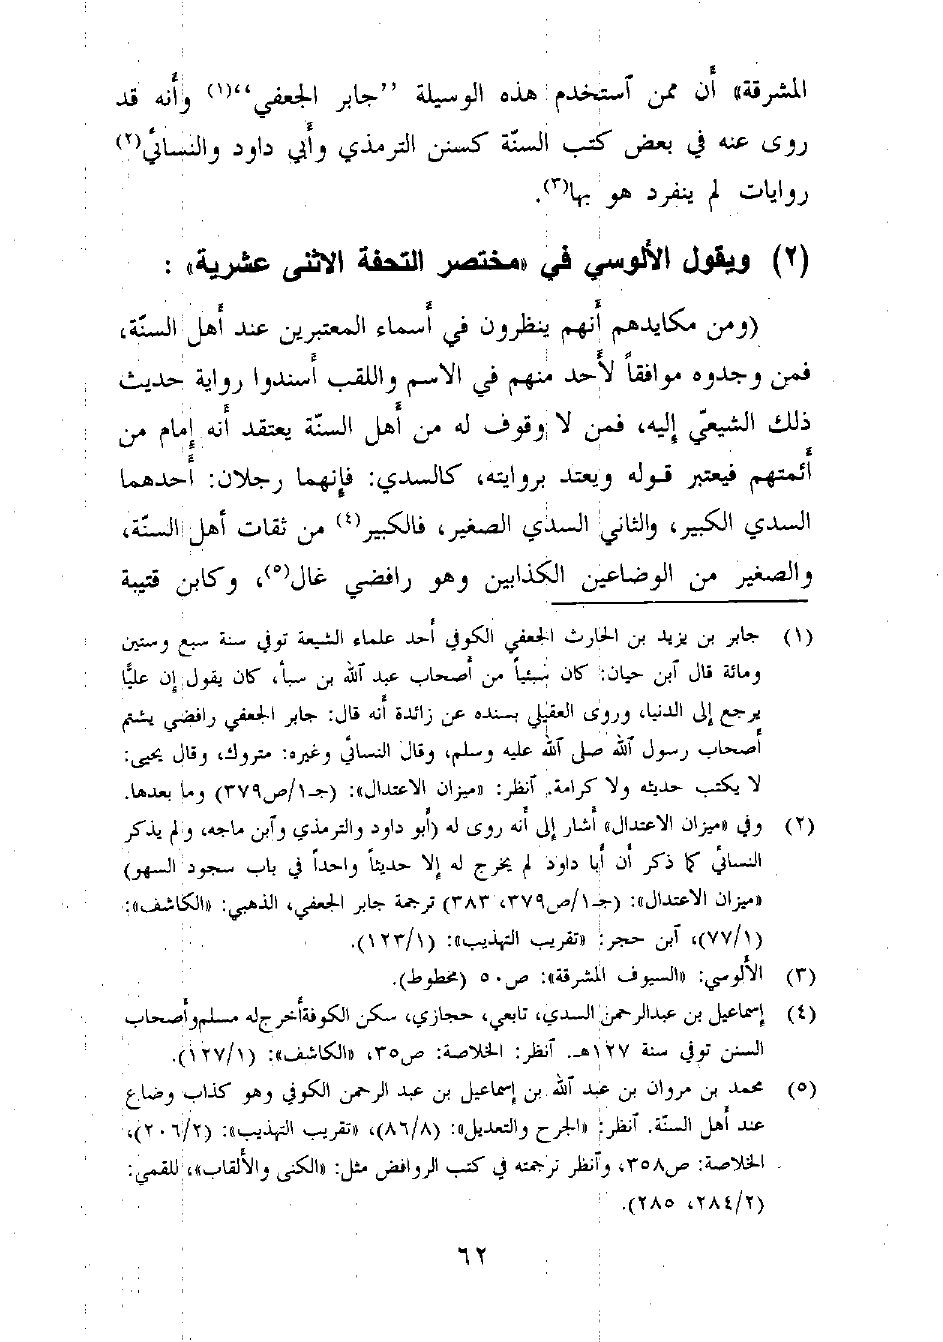 المشرقة» أن ممن استخدم هذه الوسيلة ‘‘جابر الجعفي’’(١) وأنه قد
روى عنه في بعض كتب السنّة كسنن الترمذي وأبي داود والنسائي(٢)
روايات لم ينفرد هو بها(٣).
(٢) ويقول الألوسي في «مختصر التحفة الاثنى عشرية» :
(ومن مكايدهم أنهم ينظرون في أسماء المعتبرين عند أهل السنّة،
فمن وجدوه موافقاً لأحد منهم في الاسم واللقب أسندوا رواية حديث
ذلك الشيعيّ إليه، فمن لا وقوف له من أهل السنّة يعتقد أنه إمام من
أئمتهم فيعتبر قوله ويعتد بروايته، كالسدي: فإنهما رجلان: أحدهما
السدي الكبير، والثاني السدي الصغير، فالكبير(٤) من ثقات أهل السنّة،
والصغير من الوضاعين الكذابين وهو رافضي غال(٥)، وكابن قتيبة
(١) جابر بن يزيد بن الحارث الجعفي الكوفي أحد علماء الشيعة توفي سنة سبع وستين
ومائة قال ابن حيان: كان سبئياً من أصحاب عبد الله بن سبأ، كان يقول إن عليًّا
يرجع إلى الدنيا، وروى العقيلي بسنده عن زائدة أنه قال: جابر الجعفي رافضي يشتم
أصحاب رسول الله صلى الله عليه وسلم، وقال النسائي وغيره: متروك، وقال يحيى:
لا يكتب حديثه ولا كرامة. انظر: «ميزان الاعتدال»: (جـ١/ص٣٧٩) وما بعدها.
(٢) وفي «ميزان الاعتدال» أشار إلى أنه روى له (أبو داود والترمذي وابن ماجه، ولم يذكر
النسائي كما ذكر أن أبا داود لم يخرج له إلا حديثاً واحداً في باب سجود السهو)
«ميزان الاعتدال»: (جـ١/ص٣٧٩، ٣٨٣) ترجمة جابر الجعفي، الذهبي: «الكاشف»:
(٧٧/١)، ابن حجر: «تقريب التهذيب»: (١٢٣/١).
(٣) الألوسي: «السيوف المشرقة»: ص٥٠ (مخطوط).
(٤) إسماعيل بن عبدالرحمن السدي، تابعي، حجازي، سكن الكوفةأخرج له مسلم وأصحاب
السنن توفي سنة ١٢٧هـ. انظر: الخلاصة: ص٣٥، «الكاشف»: (١٢٧/١).
(٥) محمد بن مروان بن عبد الله بن إسماعيل بن عبد الرحمن الكوفي وهو كذاب وضاع
عند أهل السنّة. انظر: «الجرح والتعديل»: (٨٦/٨)، «تقريب التهذيب»: (٢٠٦/٢)،
الخلاصة: ص٣٥٨، وانظر ترجمته في كتب الروافض مثل: «الكنى والألقاب»، للقمي:
(٢٨٤/٢، ٢٨٥).
٦٢